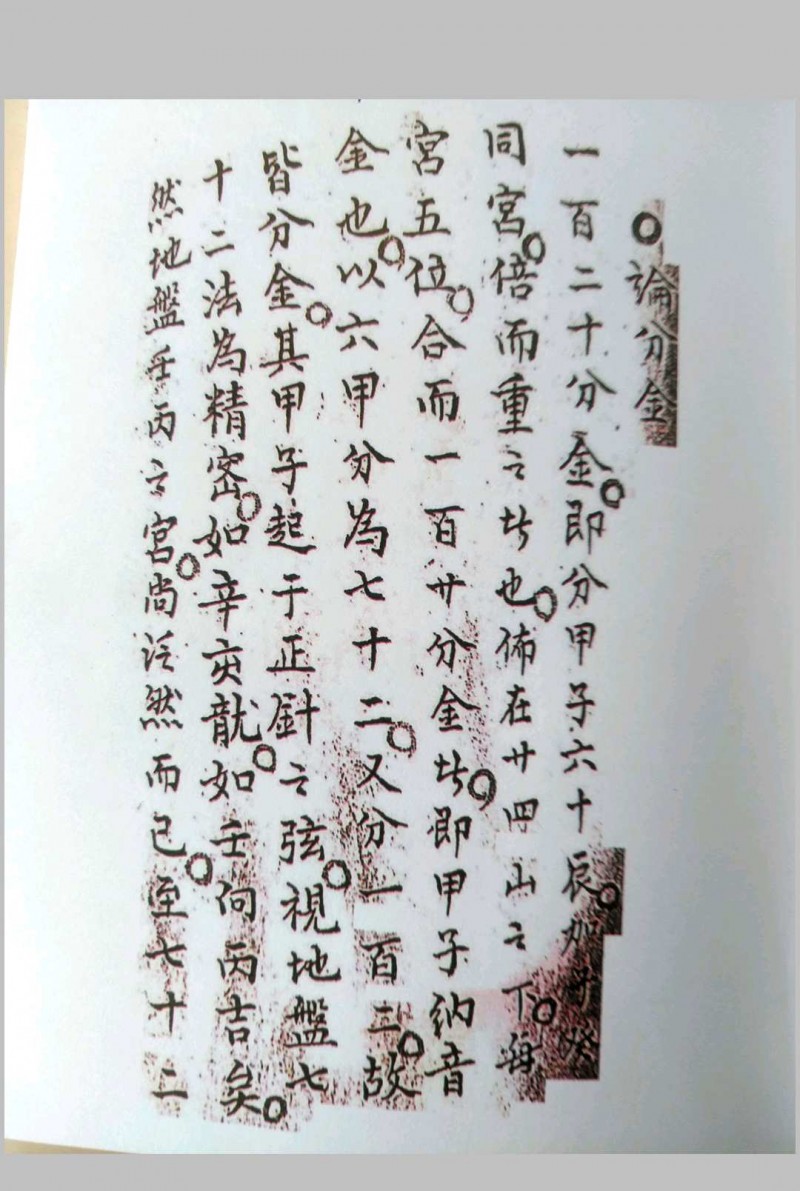 ○論分金
一百二十分金○即分甲子六十辰○如子癸
同宮○倍而重之者也○佈在廿四山之下○每
宮五位○合而一百廿分金者○即甲子納音
金也○以六甲分為七十二○又分一百二○故
皆分金○其甲子起于正針之弦○視地盤七
十二法為精密○如辛亥龍○如壬向丙吉矣○
然地盤壬丙之宮○尚泛然而已○至七十二